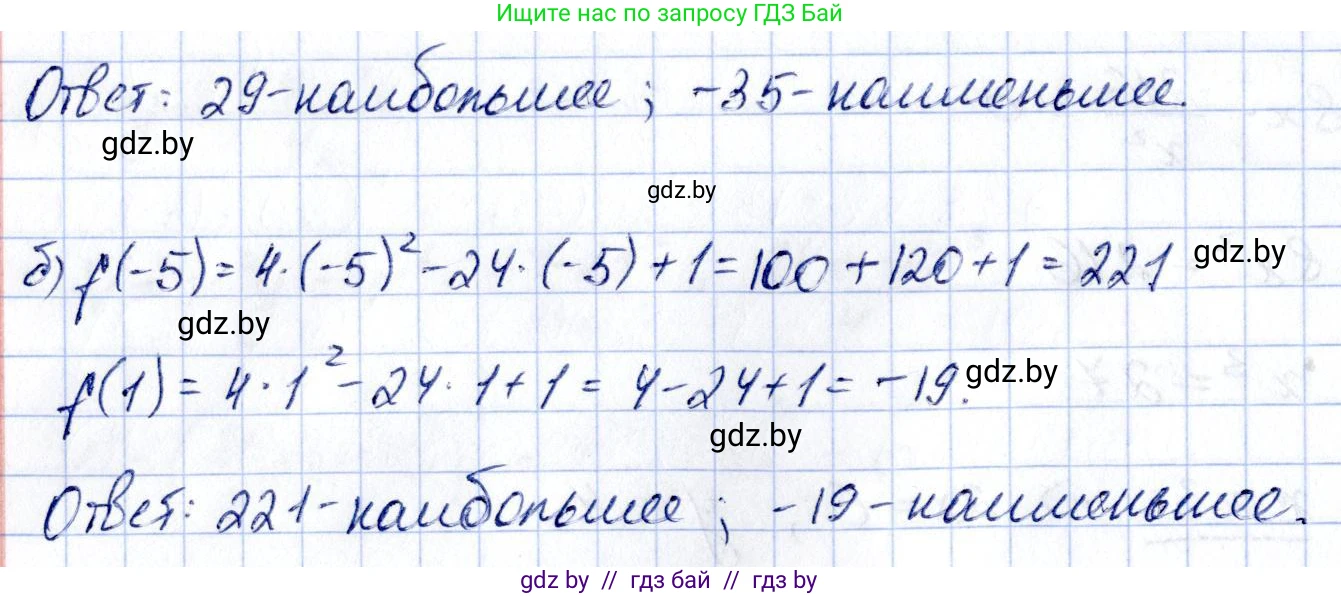 Ищите нас по запросу ГДЗ Бай
Ответ: 29 - наибольшее; -35 - наименьшее.
gdz.by
gdz.by
б) f(-5) = 4·(-5)² - 24·(-5) + 1 = 100 + 120 + 1 = 221 gdz.by
gdz.by
f(1) = 4·1² - 24·1 + 1 = 4 - 24 + 1 = -19. gdz.by
gdz.by
Ответ: 221 - наибольшее; -19 - наименьшее.
gdz.by // гдз бай // гдз by